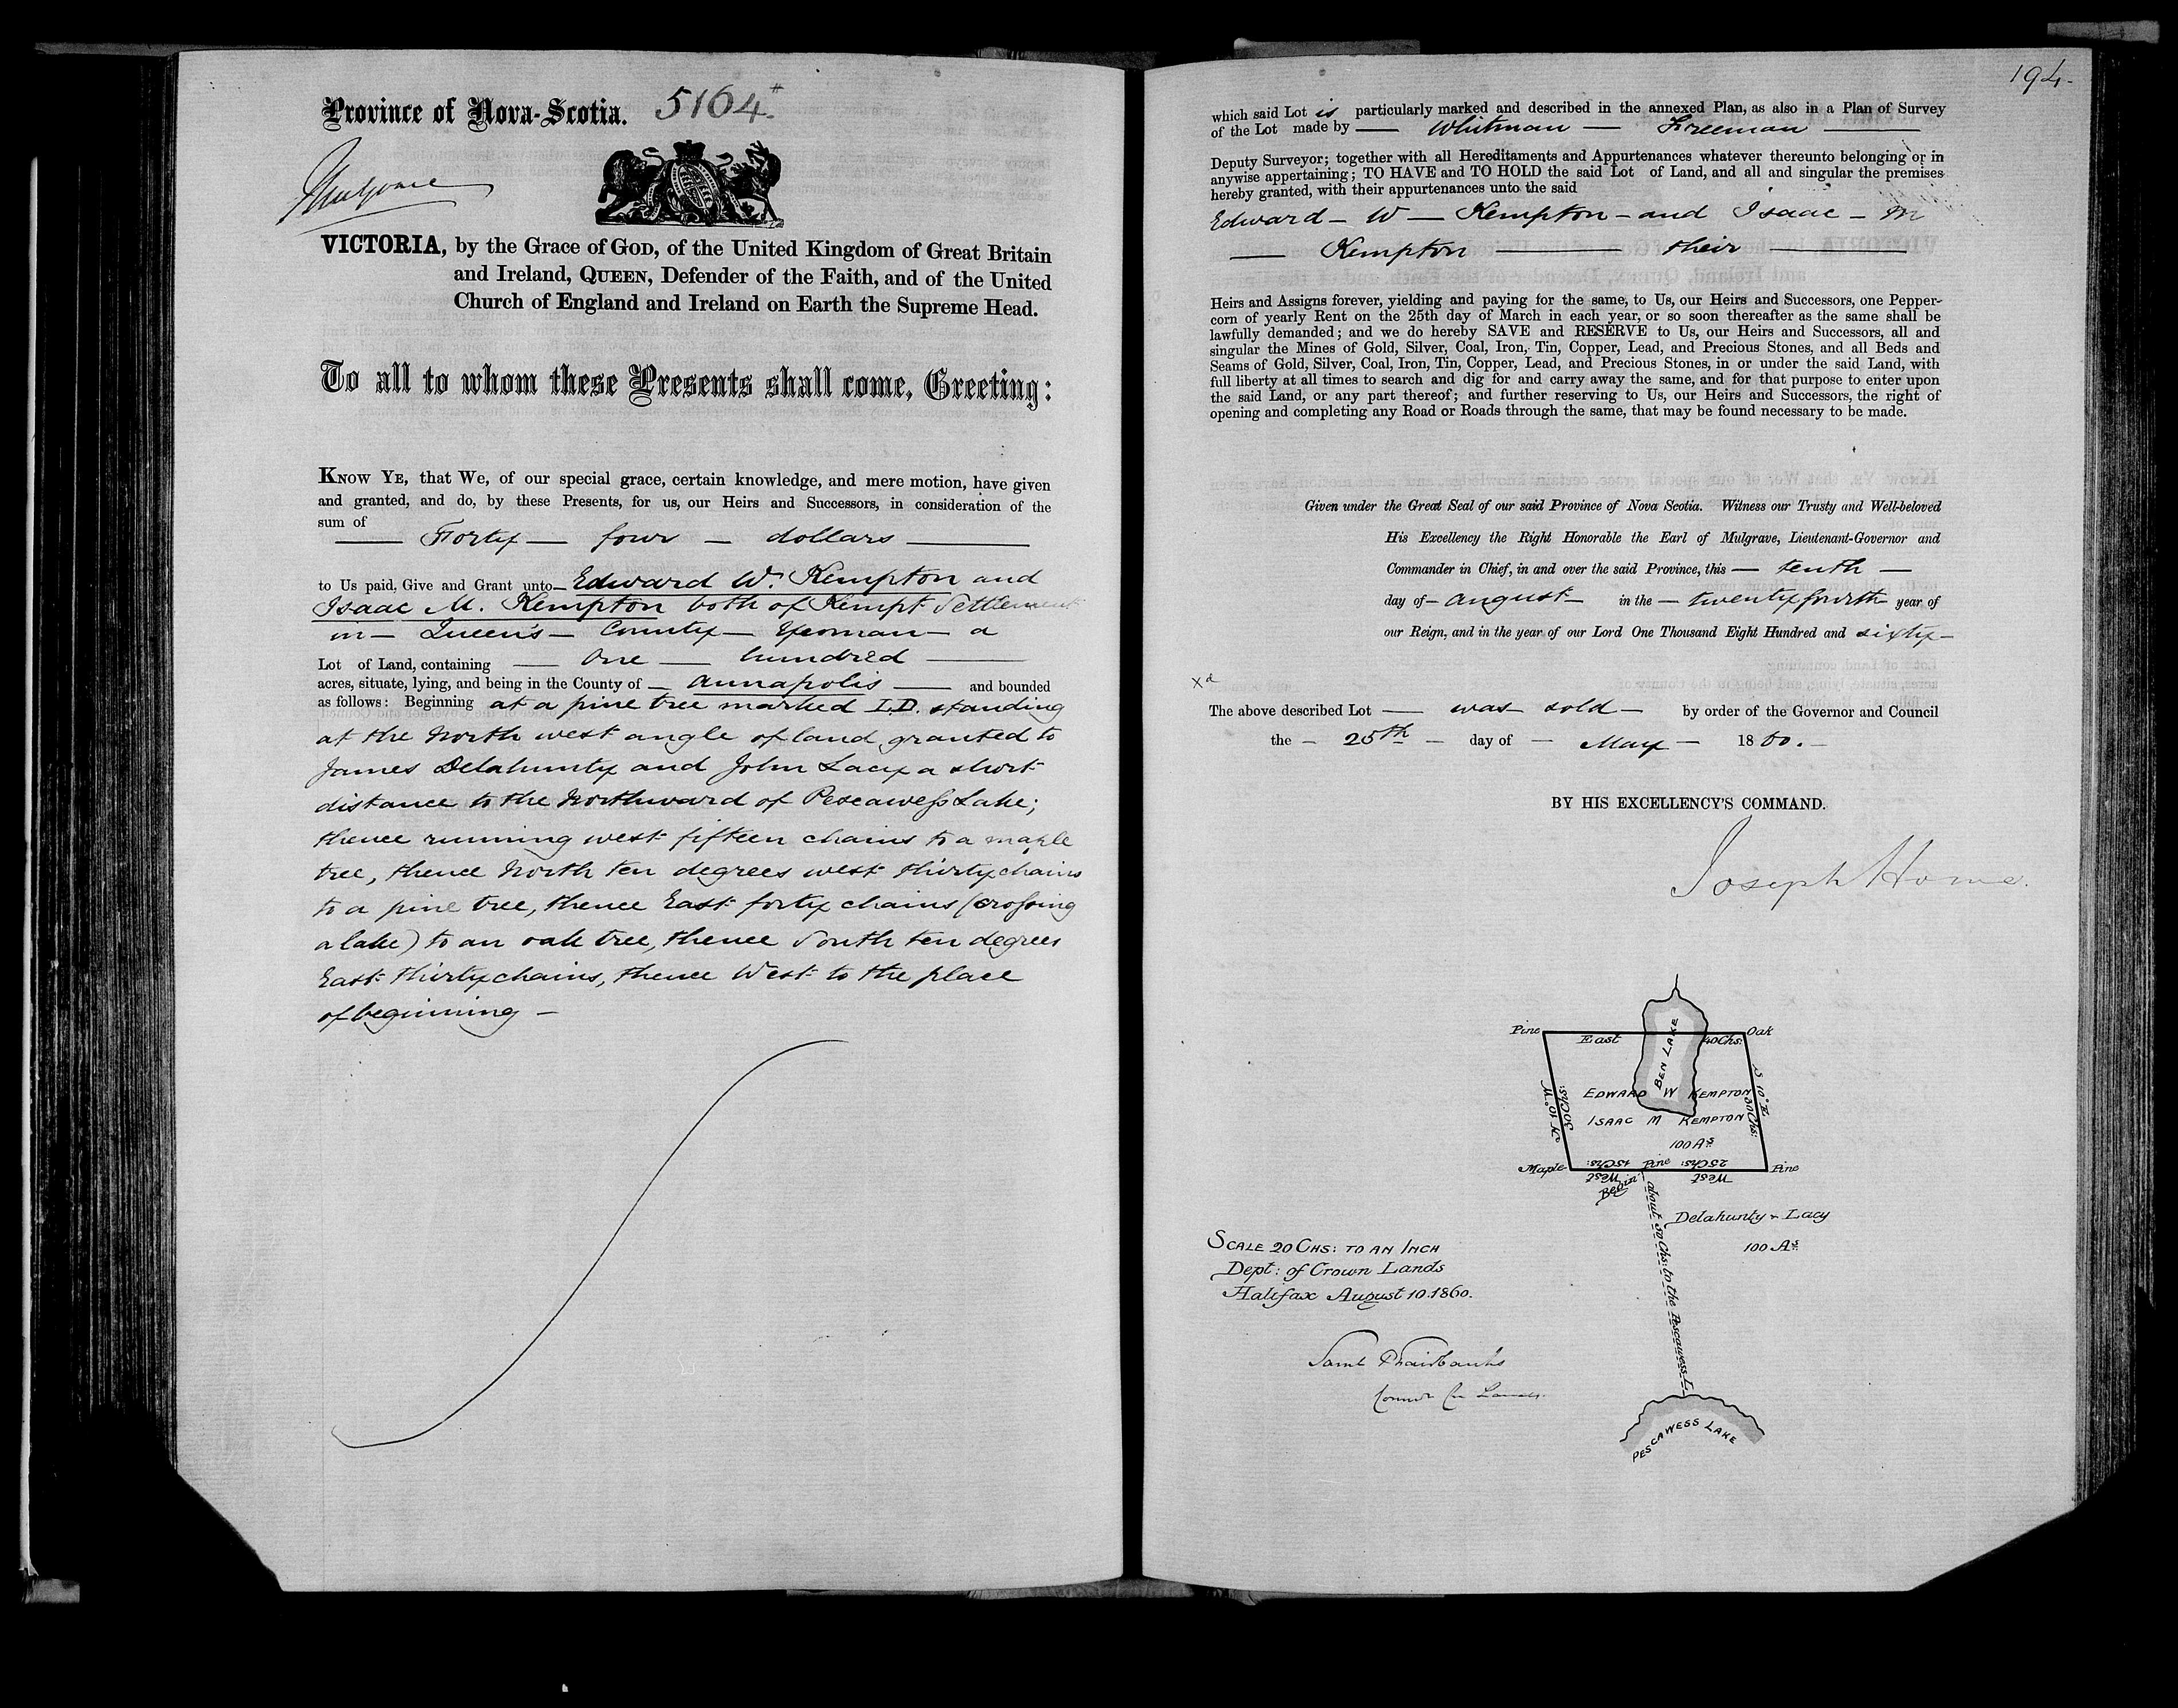 Province of Nova-Scotia. 5164
Mulgrave
VICTORIA, by the Grace of GOD, of the United Kingdom of Great Britain
and Ireland, QUEEN, Defender of the Faith, and of the United
Church of England and Ireland on Earth the Supreme Head.
To all to whom these Presents shall come, Greeting:
KNOW YE, that We, of our special grace, certain knowledge, and mere motion, have given
and granted, and do, by these Presents, for us, our Heirs and Successors, in consideration of the
sum of
— Forty — four — dollars —
to Us paid, Give and Grant unto — Edward W. Kempton and
Isaac M. Kempton both of Kempt Settlement
in — Queen's — County — Yeoman — a
Lot of Land, containing — One — hundred —
acres, situate, lying, and being in the County of — Annapolis — and bounded
as follows: Beginning at a pine tree marked I.D. standing
at the North west angle of land granted to
James Delahunty and John Lacy a short
distance to the Northward of Pescawess Lake;
thence running west fifteen chains to a maple
tree, thence North ten degrees west thirty chains
to a pine tree, thence East forty chains (crossing
a lake) to an oak tree, thence South ten degrees
East thirty chains, thence West to the place
of beginning —
194
which said Lot is particularly marked and described in the annexed Plan, as also in a Plan of Survey
of the Lot made by — Whitman — Freeman —
Deputy Surveyor; together with all Hereditaments and Appurtenances whatever thereunto belonging or in
anywise appertaining; TO HAVE and TO HOLD the said Lot of Land, and all and singular the premises
hereby granted, with their appurtenances unto the said
Edward — W — Kempton — and Isaac — M
— Kempton — their —
Heirs and Assigns forever, yielding and paying for the same, to Us, our Heirs and Successors, one Pepper-
corn of yearly Rent on the 25th day of March in each year, or so soon thereafter as the same shall be
lawfully demanded; and we do hereby SAVE and RESERVE to Us, our Heirs and Successors, all and
singular the Mines of Gold, Silver, Coal, Iron, Tin, Copper, Lead, and Precious Stones, and all Beds and
Seams of Gold, Silver, Coal, Iron, Tin, Copper, Lead, and Precious Stones, in or under the said Land, with
full liberty at all times to search and dig for and carry away the same, and for that purpose to enter upon
the said Land, or any part thereof; and further reserving to Us, our Heirs and Successors, the right of
opening and completing any Road or Roads through the same, that may be found necessary to be made.
Given under the Great Seal of our said Province of Nova Scotia. Witness our Trusty and Well-beloved
His Excellency the Right Honorable the Earl of Mulgrave, Lieutenant-Governor and
Commander in Chief, in and over the said Province, this — tenth —
day of — August — in the — twenty fourth — year of
our Reign, and in the year of our Lord One Thousand Eight Hundred and sixty —
Xd
The above described Lot — was sold — by order of the Governor and Council
the — 25th — day of — May — 1860. —
BY HIS EXCELLENCY'S COMMAND.
Joseph Howe.
Pine
East
40 Chs:
Oak
BEN LAKE
N 10° W
30 Chs:
S 10° E
30 Chs:
EDWARD W KEMPTON
ISAAC M KEMPTON
100 As
Maple
15 Chs:
West
Pine
25 Chs:
West
Pine
Begin
about 50 Chs: to the Pescawess L.
Delahunty & Lacy
100 As
SCALE 20 CHS: TO AN INCH
Dept: of Crown Lands
Halifax August 10. 1860.
Saml P Fairbanks
PESCAWESS LAKE